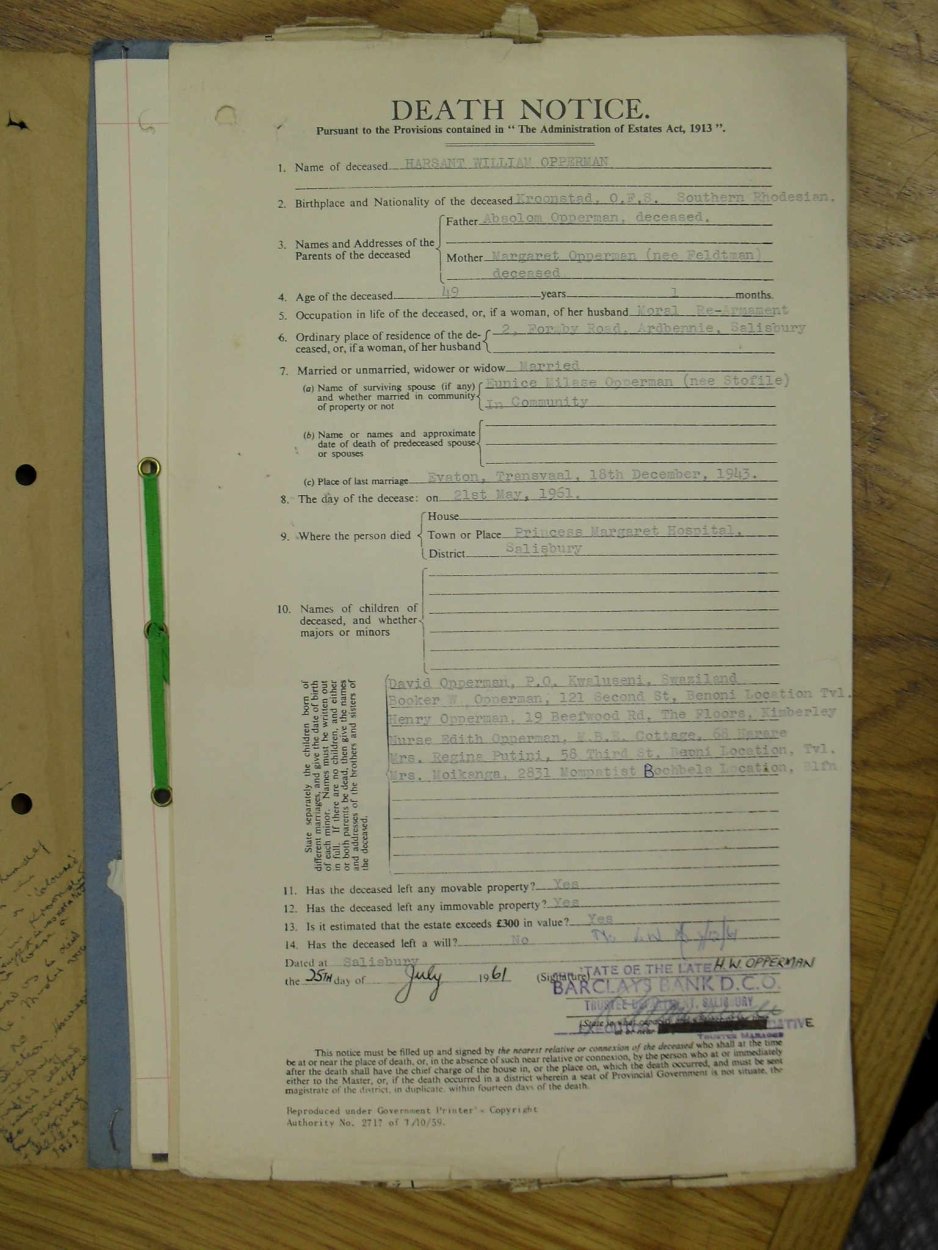 DEATH NOTICE.
Pursuant to the Provisions contained in “ The Administration of Estates Act, 1913 ”.
1. Name of deceased HARSANT WILLIAM OPPERMAN
2. Birthplace and Nationality of the deceased Kroonstad, O.F.S. Southern Rhodesian.
3. Names and Addresses of the Parents of the deceased
Father Absolom Opperman, deceased.
Mother Margaret Opperman (nee Feldtman)
deceased
4. Age of the deceased 49 years 1 months.
5. Occupation in life of the deceased, or, if a woman, of her husband Moral Re-Armament
6. Ordinary place of residence of the de-
ceased, or, if a woman, of her husband
2, Formby Road, Ardbennie, Salisbury
7. Married or unmarried, widower or widow Married
(a) Name of surviving spouse (if any)
and whether married in community
of property or not
Eunice Milase Opperman (nee Stofile)
In Community
(b) Name or names and approximate
date of death of predeceased spouse
or spouses
(c) Place of last marriage Evaton, Transvaal, 18th December, 1943.
8. The day of the decease: on 21st May, 1961.
9. Where the person died
House
Town or Place Princess Margaret Hospital,
District Salisbury
10. Names of children of
deceased, and whether
majors or minors
State separately the children born of
different marriages, and give the date of birth
of each minor. Names must be written out
in full. If there are no children, and either
or both parents be dead, then give the names
and addresses of the brothers and sisters of
the deceased.
David Opperman, P.O. Kwaluseni, Swaziland
Booker W. Opperman, 121 Second St, Benoni Location Tvl.
Henry Opperman, 19 Beefwood Rd, The Floors, Kimberley
Nurse Edith Opperman, M.B.R. Cottage, 68 Harare
Mrs. Regina Putini, 58 Third St, Benni Location, Tvl.
Mrs. Moikanga, 2831 Mompatist Bochbela Location, Blfn
11. Has the deceased left any movable property? Yes
12. Has the deceased left any immovable property? Yes
13. Is it estimated that the estate exceeds £300 in value? Yes
14. Has the deceased left a will? No
Dated at Salisbury
the 25TH day of July 1961 (Signature)
TATE OF THE LATE H.W. OPPERMAN
BARCLAYS BANK D.C.O.
TRUSTEE DEPARTMENT, SALISBURY
(State in what capacity
TRUSTEE MANAGER
This notice must be filled up and signed by the nearest relative or connexion of the deceased who shall at the time
be at or near the place of death, or, in the absence of such near relative or connexion, by the person who at or immediately
after the death shall have the chief charge of the house in, or the place on, which the death occurred, and must be sent
either to the Master, or, if the death occurred in a district wherein a seat of Provincial Government is not situate, the
magistrate of the district, in duplicate, within fourteen days of the death.
Reproduced under Government Printer's Copyright
Authority No. 2717 of 7/10/59.